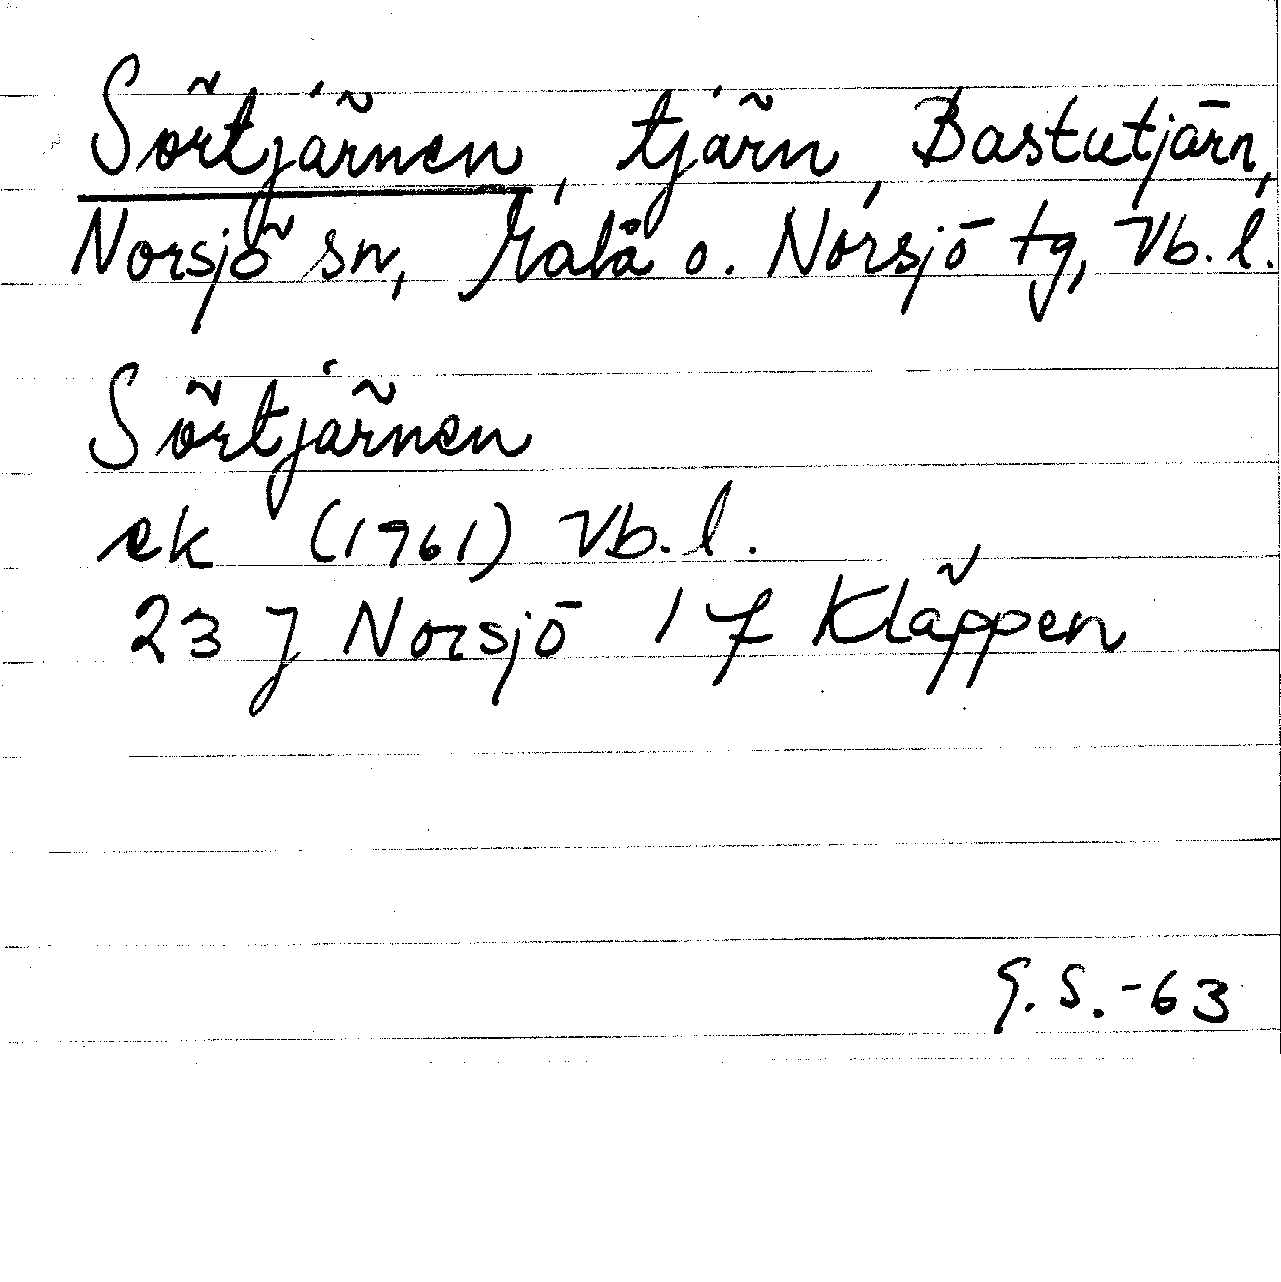 Sörtjärnen, tjärn, Bastutjärn,
Norsjö sn, Malå o. Norsjö tg, Vb. l.
Sörtjärnen
ek (1961) Vb. l.
23 J Norsjö 1 f Kläppen
G. S. -63